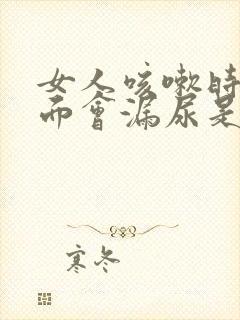 女人咳嗽时
而会漏尿是
寒冬